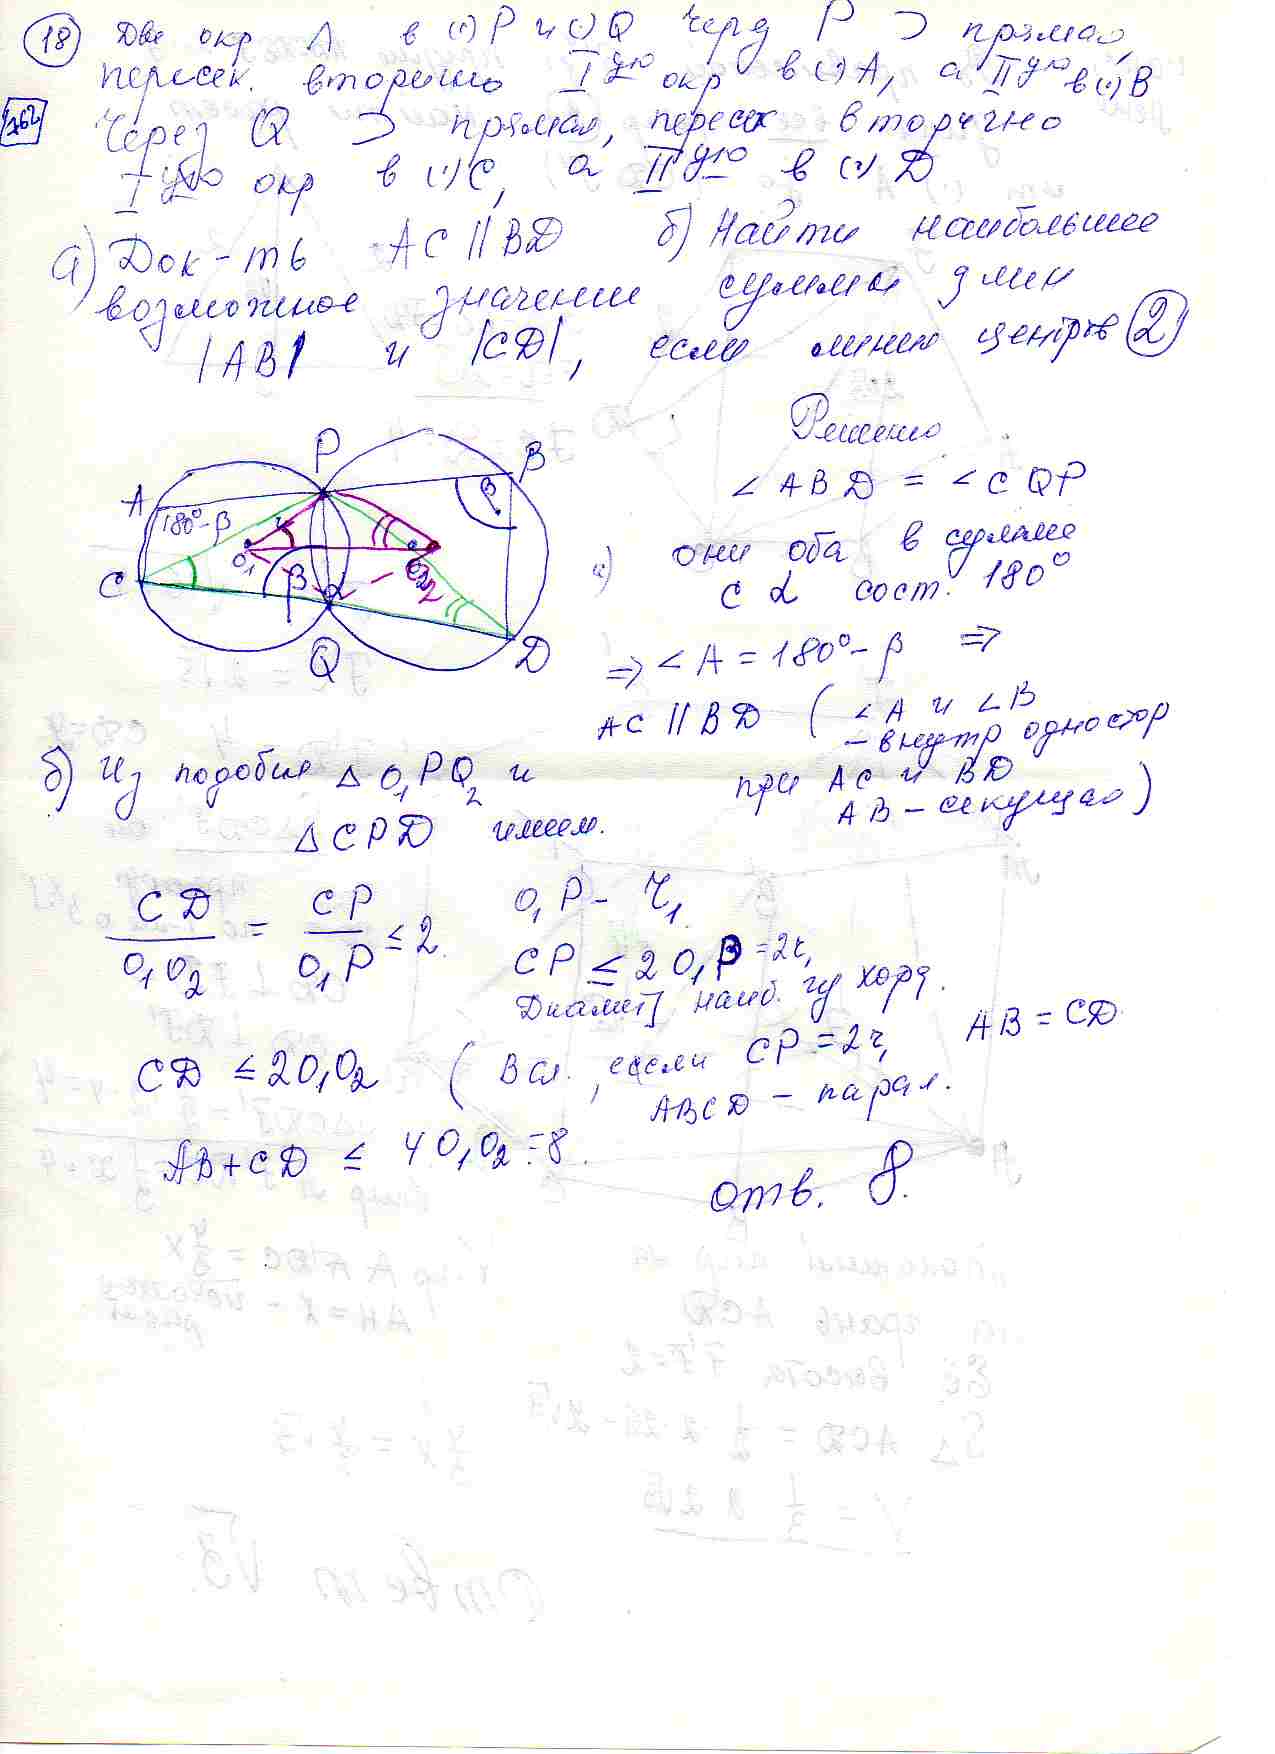 18 Две окр Λ в (·) P и (·) Q Через P ⊃ прямая,
пересек. вторично I ую окр в (·) A, а II ую в (·) B
762
Через Q ⊃ прямая, пересек вторично
I ую окр в (·) C, а II ую в (·) D
а) Док-ть AC || BD б) Найти наибольшее
возможное значение суммы длин
|AB| и |CD|, если линия центров 2
Решение
∠ABD = ∠CQP
а) они оба в сумме
с α сост. 180°
⇒ ∠A = 180° - β ⇒
AC || BD ( ∠A и ∠B
- внутр одностор
при AC и BD
AB - секущая )
P
B
A
180° - β
β
O₁
O₂
C
β
α
Q
D
б) Из подобия Δ O₁PO₂ и
Δ CPD имеем.
CD / O₁O₂ = CP / O₁P ≤ 2
O₁P - r₁
CP ≤ 2O₁P = 2r₁
Диаметр наиб. хорд.
CD ≤ 2O₁O₂ ( В сл., если CP = 2r₁ AB = CD
ABCD - парал.
AB + CD ≤ 4O₁O₂ = 8.
Отв. 8.